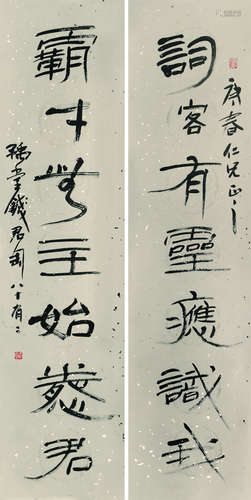 春仁兄正之
詞客有靈應識我
霸才無主始憐君
豫堂錢君匋八十有二